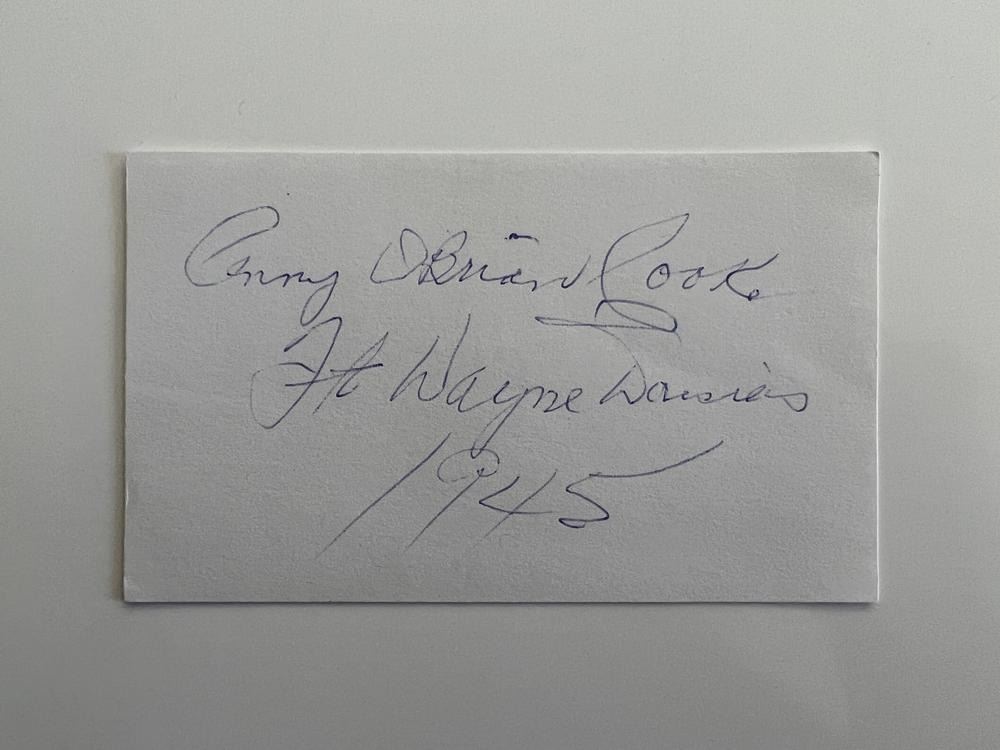 Penny O'Brian Cooke
Ft Wayne Daisies
1945